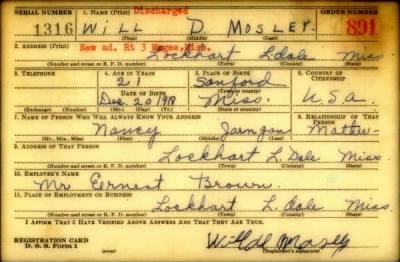 SERIAL NUMBER 1. NAME (Print) Discharged ORDER NUMBER
1316 WILL D MOSLEY 891
(First) (Middle) (Last)
2. ADDRESS (Print) New ad. Rt 3 McGee, Miss.
Lockhart L.dale Miss
(Number and street or R. F. D. number) (Town) (County) (State)
3. TELEPHONE 4. AGE IN YEARS 5. PLACE OF BIRTH 6. COUNTRY OF CITIZENSHIP
21 Sanford
DATE OF BIRTH (Town or county)
Dec. 20 1918 Miss. U.S.A.
(Exchange) (Number) (Mo.) (Day) (Yr.) (State or country)
7. NAME OF PERSON WHO WILL ALWAYS KNOW YOUR ADDRESS 8. RELATIONSHIP OF THAT PERSON
Nancy
(Mr., Mrs., Miss) (First) (Middle) (Last)
9. ADDRESS OF THAT PERSON
Lockhart L. Dale Miss.
(Number and street or R. F. D. number) (Town) (County) (State)
10. EMPLOYER'S NAME
Mr Ernest Brown.
11. PLACE OF EMPLOYMENT OR BUSINESS
Lockhart L. dale Miss
(Number and street or R. F. D. number) (Town) (County) (State)
I AFFIRM THAT I HAVE VERIFIED ABOVE ANSWERS AND THAT THEY ARE TRUE.
REGISTRATION CARD
D. S. S. Form 1 Will D Mosley
(Registrant's signature)